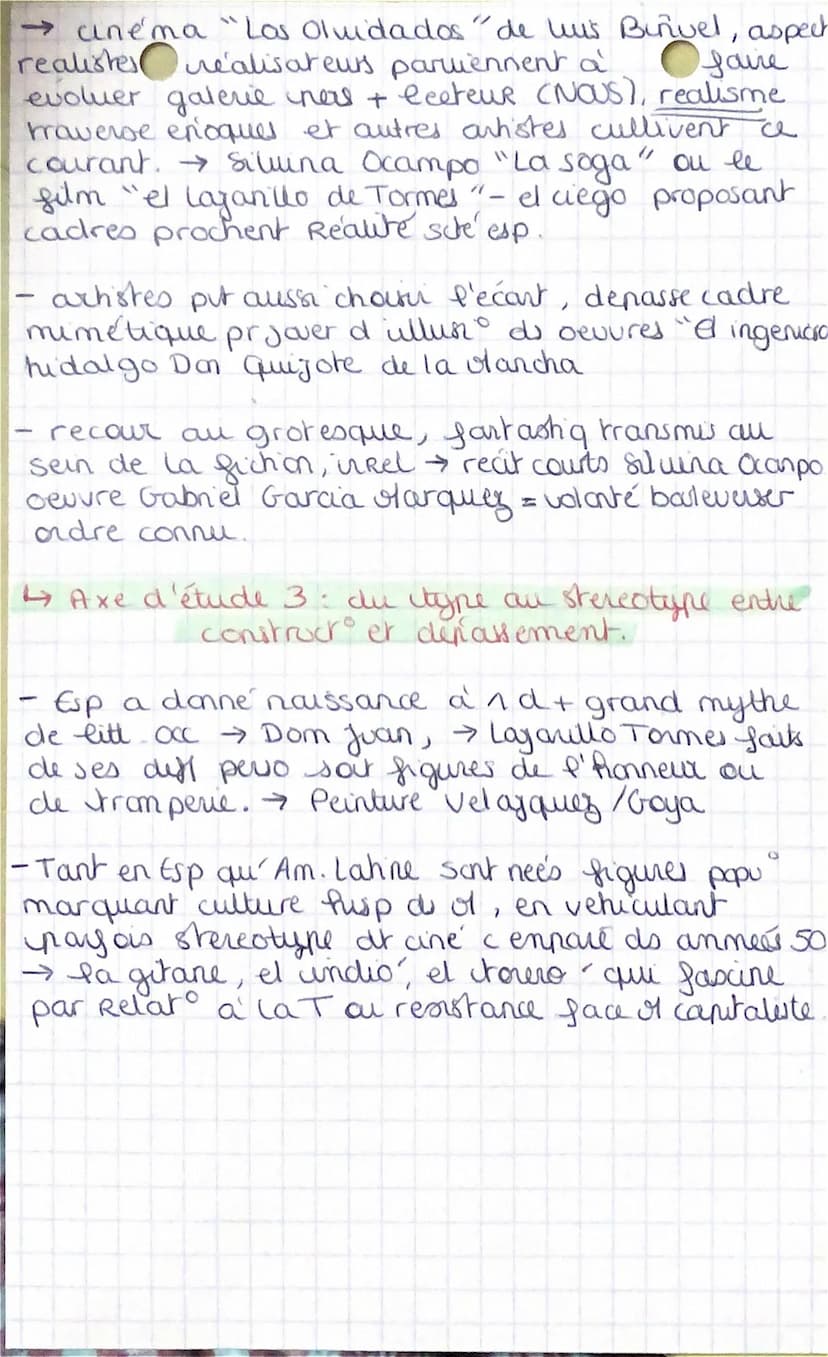 → cinéma "Los Olvidados" de Luis Buñuel, aspect
realistes réalisateurs parviennent à faire
evoluer galerie pers + lecteur (NOUS), realisme
traverse époques et autres artistes cultivent ce
courant. → Silvina Ocampo "La soga" ou le
film "el Lazarillo de Tormes" - el ciego proposant
cadres prochent Réalité scté esp.
- artistes pvt aussi choisir l'écart, depasse cadre
mimétique pr jouer d'illus° ds oeuvres "El ingenioso
hidalgo Don Quijote de la Mancha
- recour au grotesque, fantastiq transmis au
sein de la fiction, irréel → recit courts Silvina Ocanpo
oeuvre Gabriel Garcia Marquez = volonté bouleverser
ordre connu.
↳ Axe d'étude 3 : du type au stereotype entre
construct° et dépassement.
- Esp a donné naissance à 1 d + grand mythe
de litt occ → Dom Juan, → Lazarillo Tormes faits
de ses perso soit figures de l'honneur ou
de tromperie. → Peinture Velazquez / Goya
- Tant en Esp qu'Am. Latine sont neés figures popu°
marquant culture hisp du M, en vehiculant
parfois stereotype dt ciné s'empare ds anneés 50
→ la gitane, el indio, el torero qui fascine
par Relat° à la T ou resistance face M capitaliste.